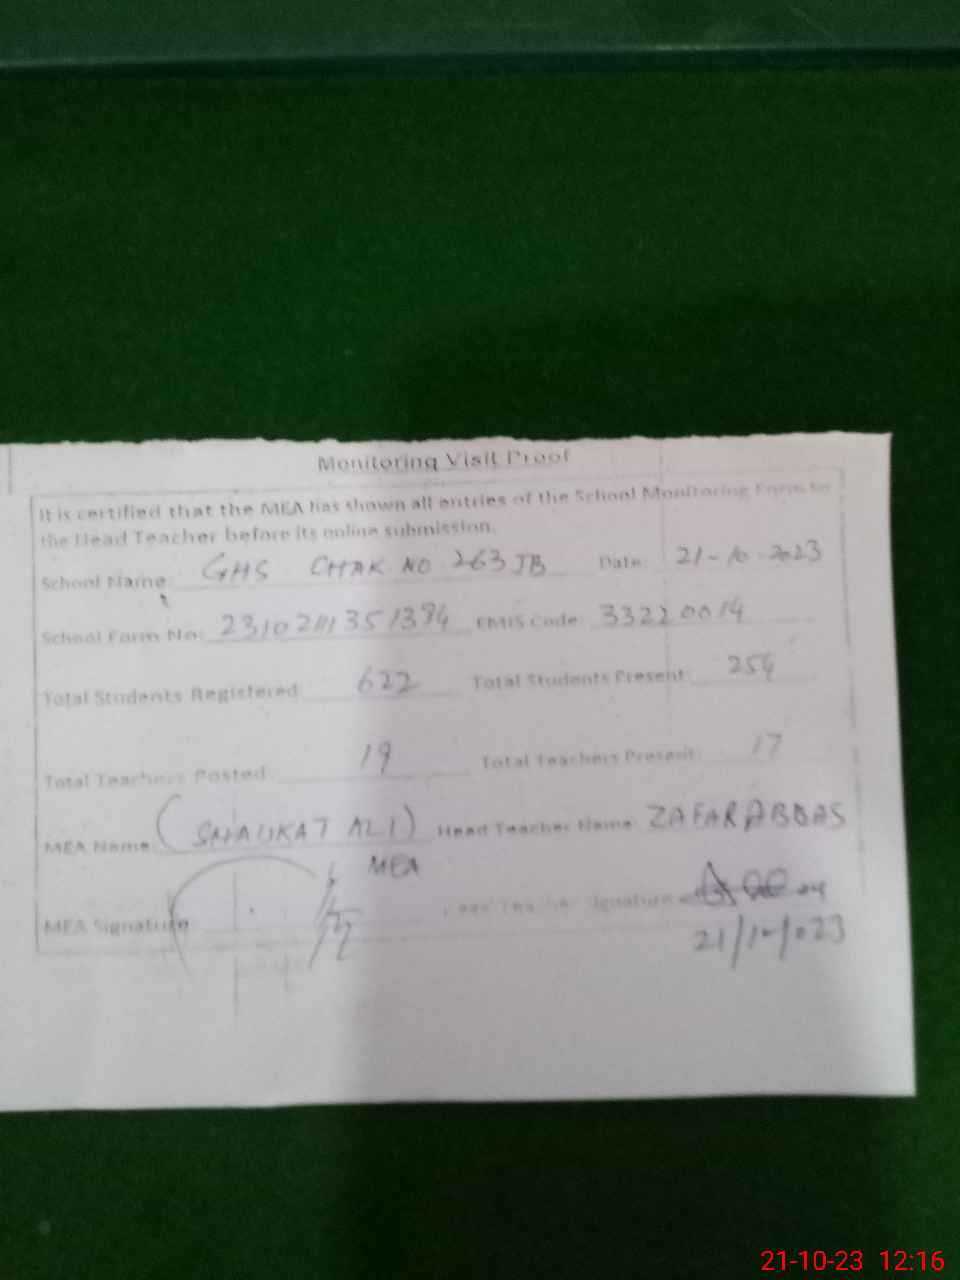 Monitoring Visit Proof
It is certified that the MEA has shown all entries of the School Monitoring Form to
the Head Teacher before its online submission.
School Name: GHS CHAK NO 263 JB Date: 21-10-2023
School Form No: EMIS Code: 33220014
Total Students Registered: 622 Total Students Present: 254
Total Teachers Posted: 19 Total Teachers Present: 17
MEA Name: (SHAUKAT ALI) Head Teacher Name: ZAFAR ABBAS
MEA
MEA Signature Head Teacher Signature
21/10/023
21-10-23 12:16